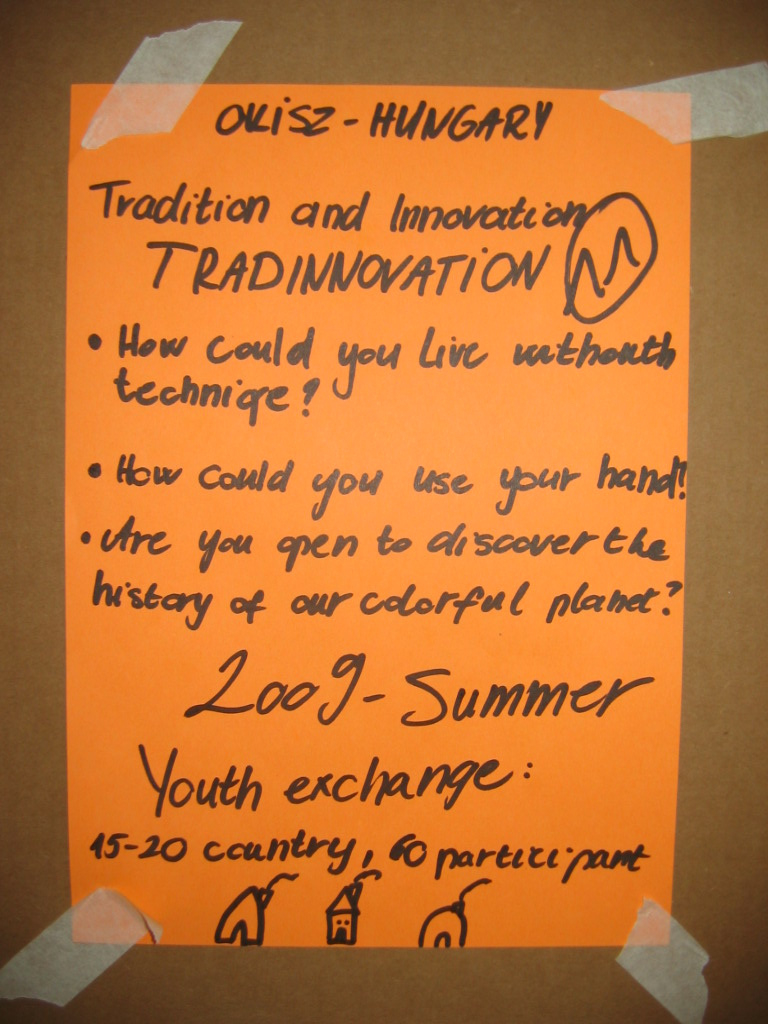 OKISZ - HUNGARY
Tradition and Innovation
TRADINNOVATION
• How could you live withouth
techniqe?
• How could you use your hand?
• Are you open to discover the
history of our colorful planet?
2009 - Summer
Youth exchange:
15-20 country, 60 participant